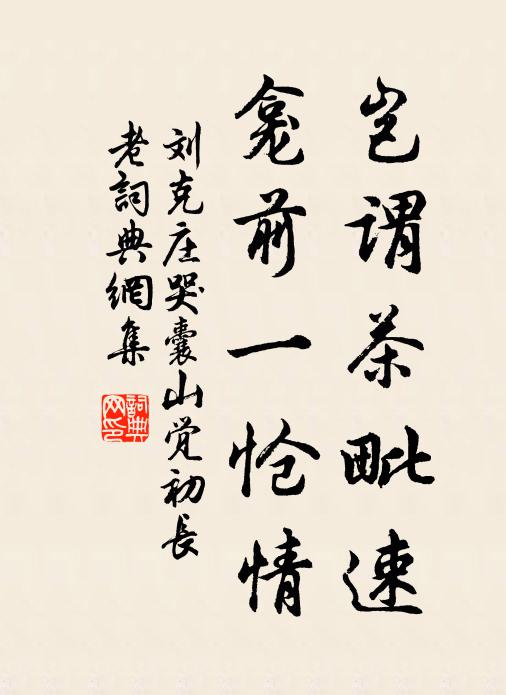 岂谓茶毗速
龛前一怆情
刘克庄哭囊山觉初长
老詞典網集
詞典
网印